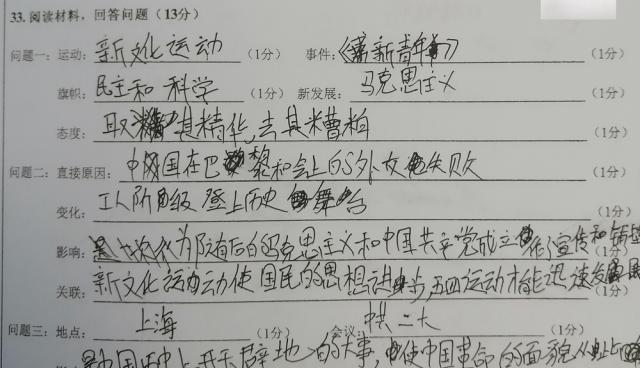 33. 阅读材料，回答问题（13分）
问题一：运动：新文化运动（1分） 事件：《新青年》（1分）
旗帜：民主和科学（1分） 新发展：马克思主义（1分）
态度：取其精华，去其糟粕（1分）
问题二：直接原因：中国在巴黎和会上的外交失败（1分）
变化：工人阶级登上历史舞台（1分）
影响：为随后的马克思主义和中国共产党成立作了宣传和铺垫（1分）
关联：新文化运动使国民的思想进步，五四运动才能迅速发展（1分）
问题三：地点：上海（1分） 会议：中共二大（1分）
中国历史上开天辟地的大事，使中国革命的面貌从此